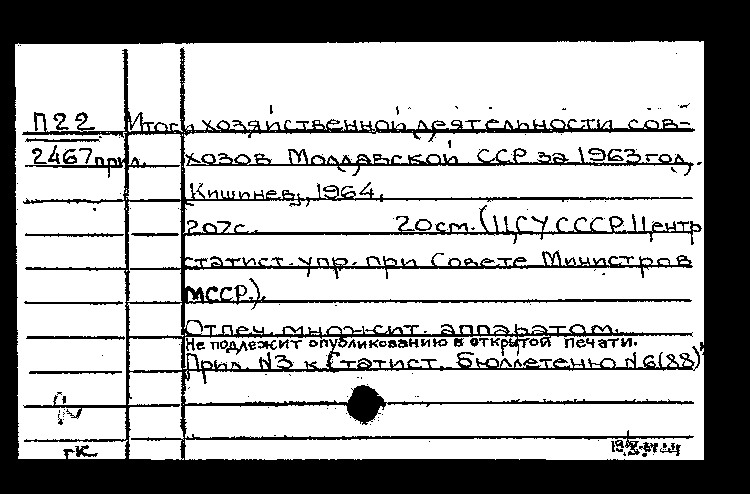 П22 Итоги хозяйственной деятельности сов-
2467прил. хозов Молдавской ССР за 1963 год.
Кишинев, 1964.
207с. 20см. (ЦСУ СССР. Центр.
статист. упр. при Совете Министров
МССР.).
Отпеч. множит. аппаратом.
Не подлежит опубликованию в открытой печати.
Прил. N3 к Статист. бюллетеню N6(88)
гк